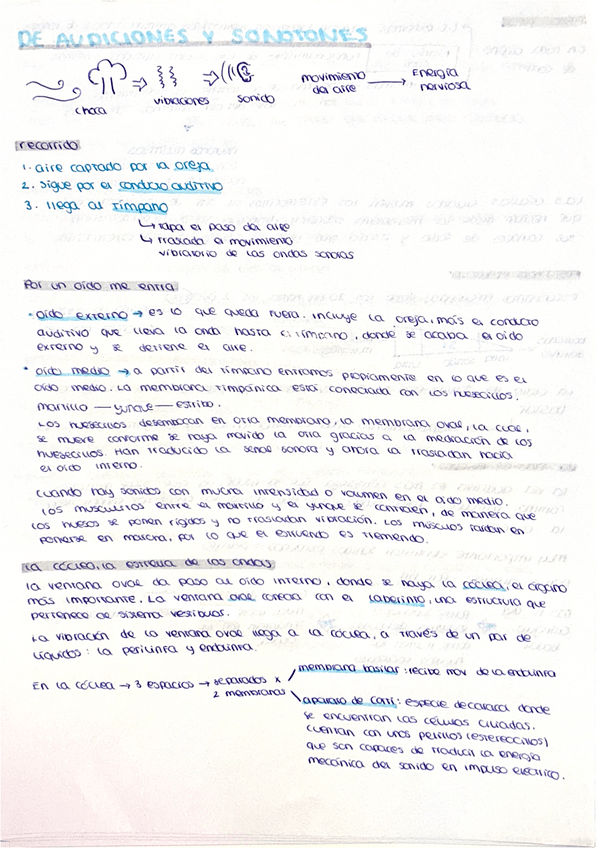 DE AUDICIONES Y SONOTONES
choca
vibraciones
sonido
movimiento del aire → Energía nerviosa
recorrido
1. aire captado por la oreja
2. sigue por el conducto auditivo
3. llega al tímpano
↳ tapa el paso del aire
↳ traslada el movimiento
vibratorio de las ondas sonoras
Por un oído me entra
• oído externo → es lo que queda fuera. Incluye la oreja, más el conducto
auditivo que lleva la onda hasta el tímpano, donde se acaba el oído
externo y se detiene el aire.
• oído medio → a partir del tímpano entramos propiamente en lo que es el
oído medio. La membrana timpánica está conectada con los huesecillos.
martillo — yunque — estribo.
Los huesecillos desembocan en otra membrana, la membrana oval, la cual,
se mueve conforme se haya movido la otra gracias a la mediación de los
huesecillos. Han traducido la señal sonora y ahora la trasladan hacia
el oído interno.
Cuando hay sonidos con mucha intensidad o volumen en el oído medio.
Los musculitos entre el martillo y el yunque se contraen, de manera que
los huesos se ponen rígidos y no trasladan vibración. Los músculos tardan en
ponerse en marcha, por lo que el estruendo es tremendo.
La cóclea, la estrella de las ondas
la ventana oval da paso al oído interno, donde se haya la cóclea, el órgano
más importante. La ventana oval conecta con el laberinto, una estructura que
pertenece al sistema vestibular.
La vibración de la ventana oval llega a la cóclea, a través de un par de
líquidos: la perilinfa y endolinfa.
En la cóclea → 3 espacios → separados x
2 membranas
membrana basilar: recibe mov de la endolinfa
aparato de corti: especie de caraca donde
se encuentran las células ciliadas.
cuentan con unos pelillos (estereocilios)
que son capaces de traducir la energía
mecánica del sonido en impulso eléctrico.